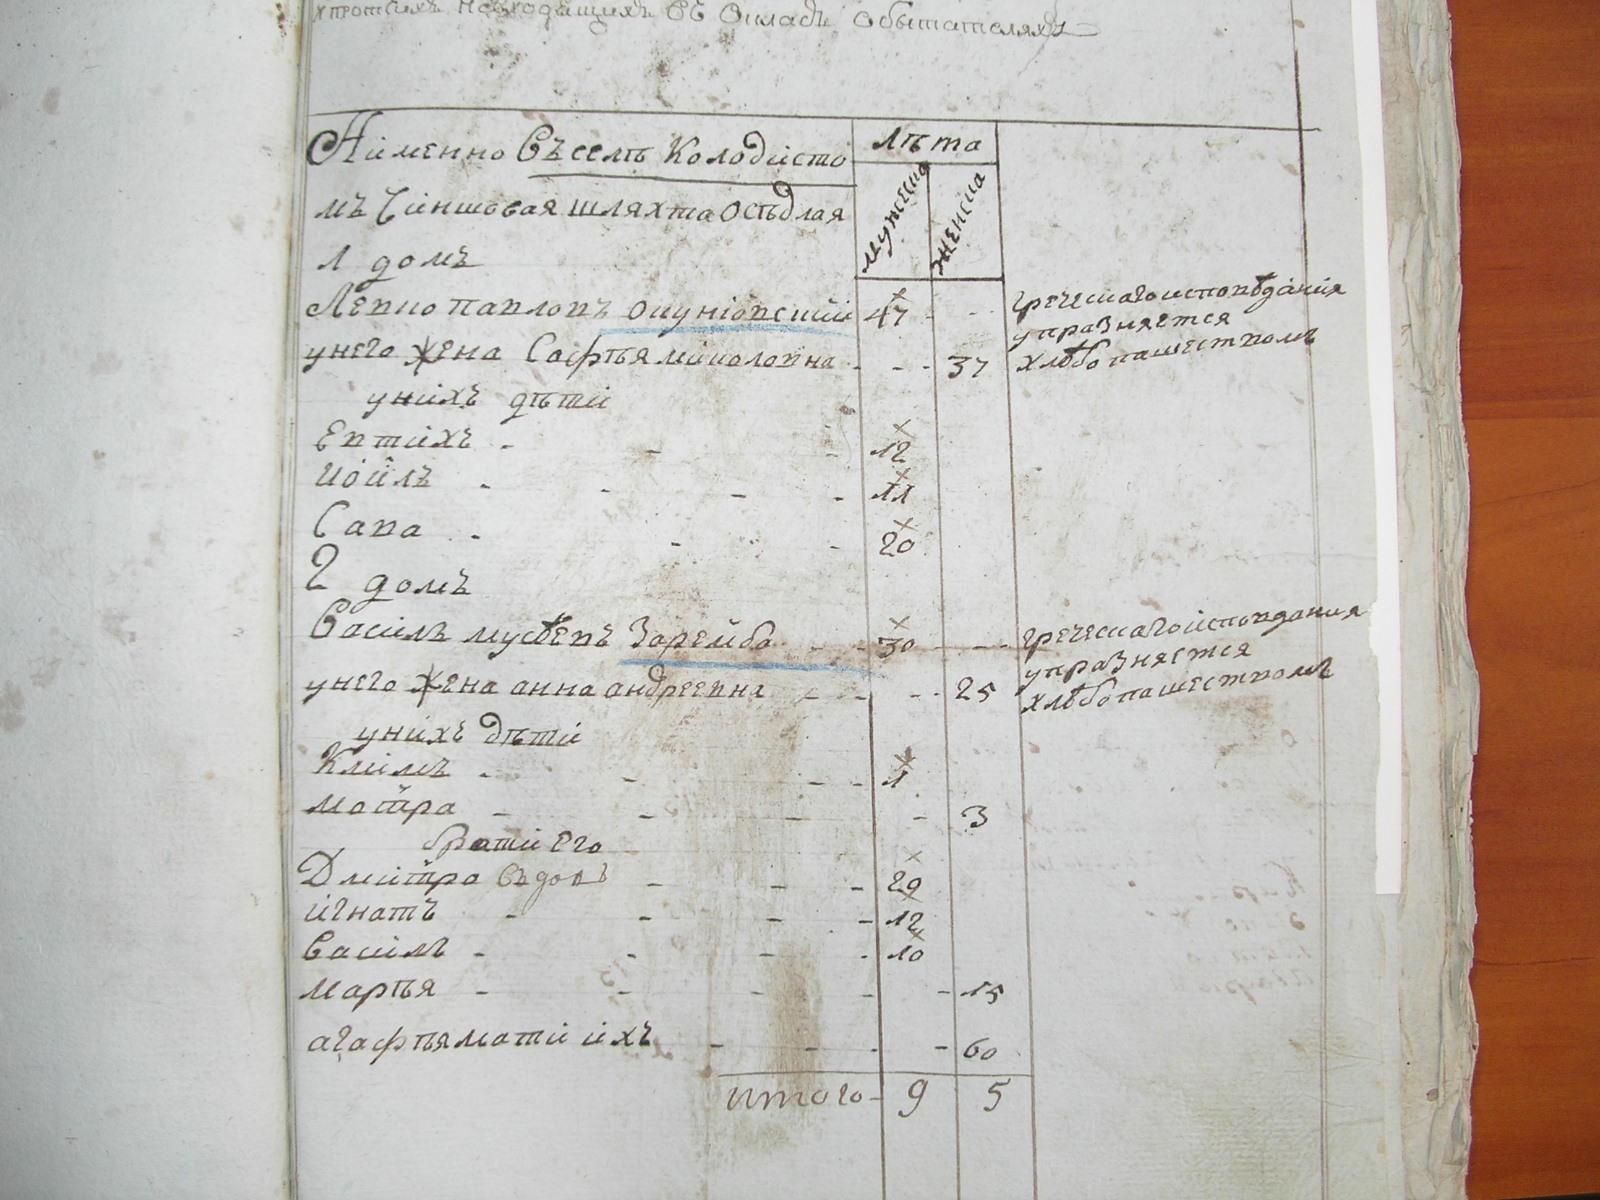 хпротчихъ невходящихъ въ окладъ обытателяхъ
Аименно Въселъ Колодисто
лѣта
мъ Чиншовая шляхта осѣдлая
мужеска
женска
1 домъ
Левко павловъ окуніовский 47 - -
греческаго исповѣданія
упразняется
хлѣбопашествомъ
унего жена Софья миколовна - - - 37
унихъ дѣти
Евтихъ - - - 12
Иоилъ - - - - 11
Сава - - - 20
2 домъ
Василь мусѣевъ Заремба - - 30 - -
греческаго исповдания
упразняется
хлѣбопашествомъ
унего жена анна андреевна - - - - 25
унихъ дѣти
Климъ - - - - 1
мотра - - - - 3
брати его
Дмитро вдовъ - - - 29
игнатъ - - - - 12
василь - - - - 10
марья - - - - - 15
агафья мати ихъ - - - - 60
итого - 9 5